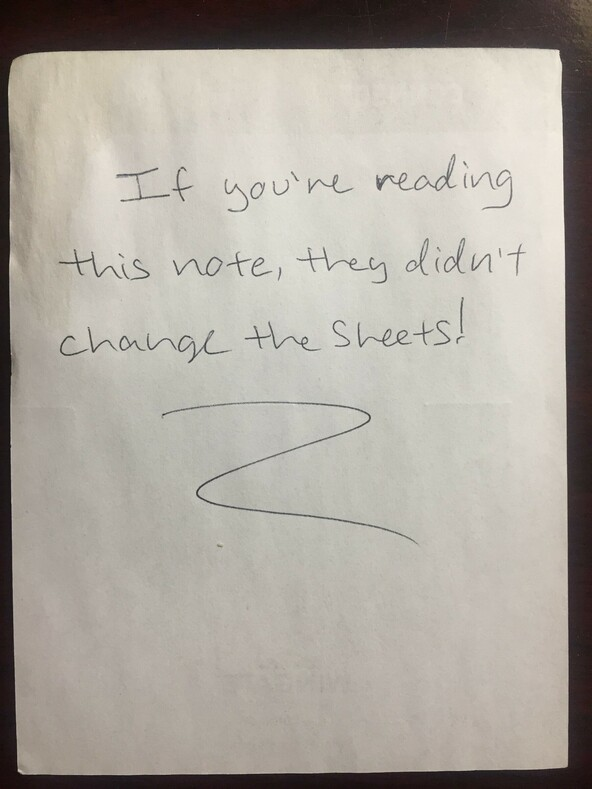 If you're reading
this note, they didn't
change the Sheets!